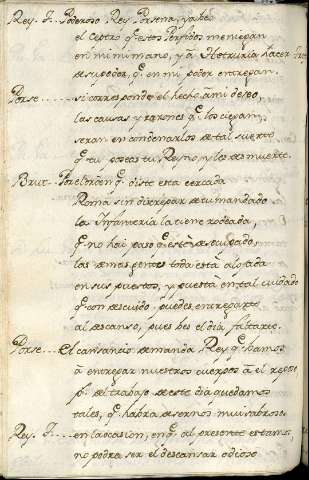 Rey. T. Poderoso Rey Porsena, ya beo
el ceptro q.e estos Perfidos me niegan
en mi mano, y a Hetruria hacer
de su poder, q.e en mi poder entregan.
Porse....... si corresponde el hecho, a mi deseo,
las causas y razones q.e los ciegan,
seran en condenarlos de tal suerte
q.e tu poseas tu Reyno, y les des muerte.
Brut.. Por el orden q.e diste esta cercada
Roma sin discrepar de tu mandado
la Infanteria la tiene rodeada,
q.e no hai paso q.e este desocupado,
la demas gente toda está alojada
en sus puestos, y puesta en tal cuidado
q.e con descuido puedes entregarte
al descanso, pues bes el dia faltarte.
Porse... El cansancio demanda Rey q.e bamos
à entregar nuestros cuerpos à el reposo
p.r el trabajo de este dia quedamos
tales, q.e habra de sernos mui sabroso.
Rey. T..... en la ocasion, en q.e al presente estamos
no podra ser el descansar odioso